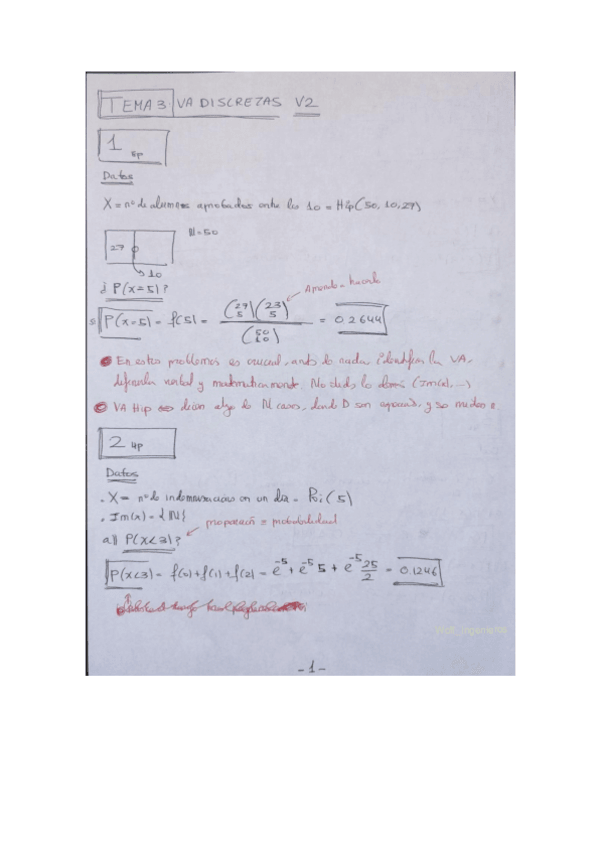 TEMA 3: VA DISCRETAS V2
1 6p
Datos
X = nº de alumnos aprobados entre los 10 = Hip(50, 10, 27)
27 N=50
10
¿P(x=5)?
Aprende a hacerlo
P(x=5) = f(5) = (27 5)(23 5) / (50 10) = 0.2644
En estos problemas es crucial, antes de nada, identificar la VA,
definirla verbal y matematicamente. No olvides lo demás (Im(x), ...)
VA Hip dicen algo de N casos, donde D son y se miden n.
2 4p
Datos
. X = nº de indemnizaciones en un día = Poi(5)
. Im(x) = {ℕ}
proporción = probabilidad
a) ¿P(x<3)?
P(x<3) = f(0) + f(1) + f(2) = e^-5 + e^-5 5 + e^-5 25/2 = 0.1246
-1-